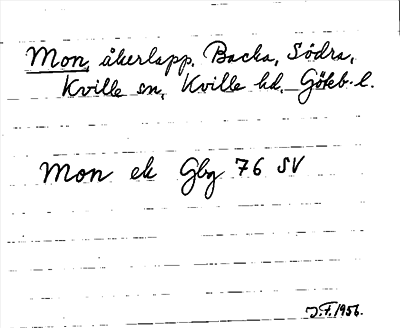 Mon, åkerlapp. Backa, Södra,
Kville sn, Kville hd. Göteb. l.
Mon ek Gbg 76 SV
J.F. 1956.